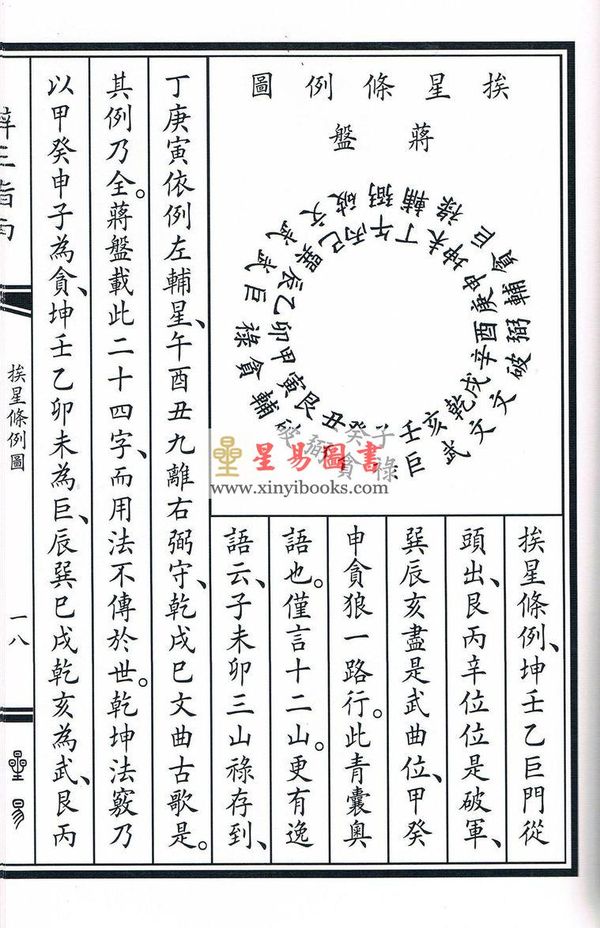 挨星條例圖
蔣盤
文破弼輔祿巨貪輔弼破文文武巨
巳丙午丁未坤申庚酉辛戌乾亥壬子癸丑艮寅甲卯乙辰巽
祿貪弼破輔貪祿巨武武
星易圖書
www.xinyibooks.com
挨星條例、坤壬乙巨門從
頭出、艮丙辛位位是破軍、
巽辰亥盡是武曲位、甲癸
申貪狼一路行。此青囊奧
語也。僅言十二山。更有逸
語云、子未卯三山祿存到、
丁庚寅依例左輔星、午酉丑九離右弼守、乾戌巳文曲古歌是。
其例乃全。蔣盤載此二十四字、而用法不傳於世。乾坤法竅乃
以甲癸申子為貪、坤壬乙卯未為巨、辰巽巳戌乾亥為武、艮丙
挨星條例圖
一八
星易